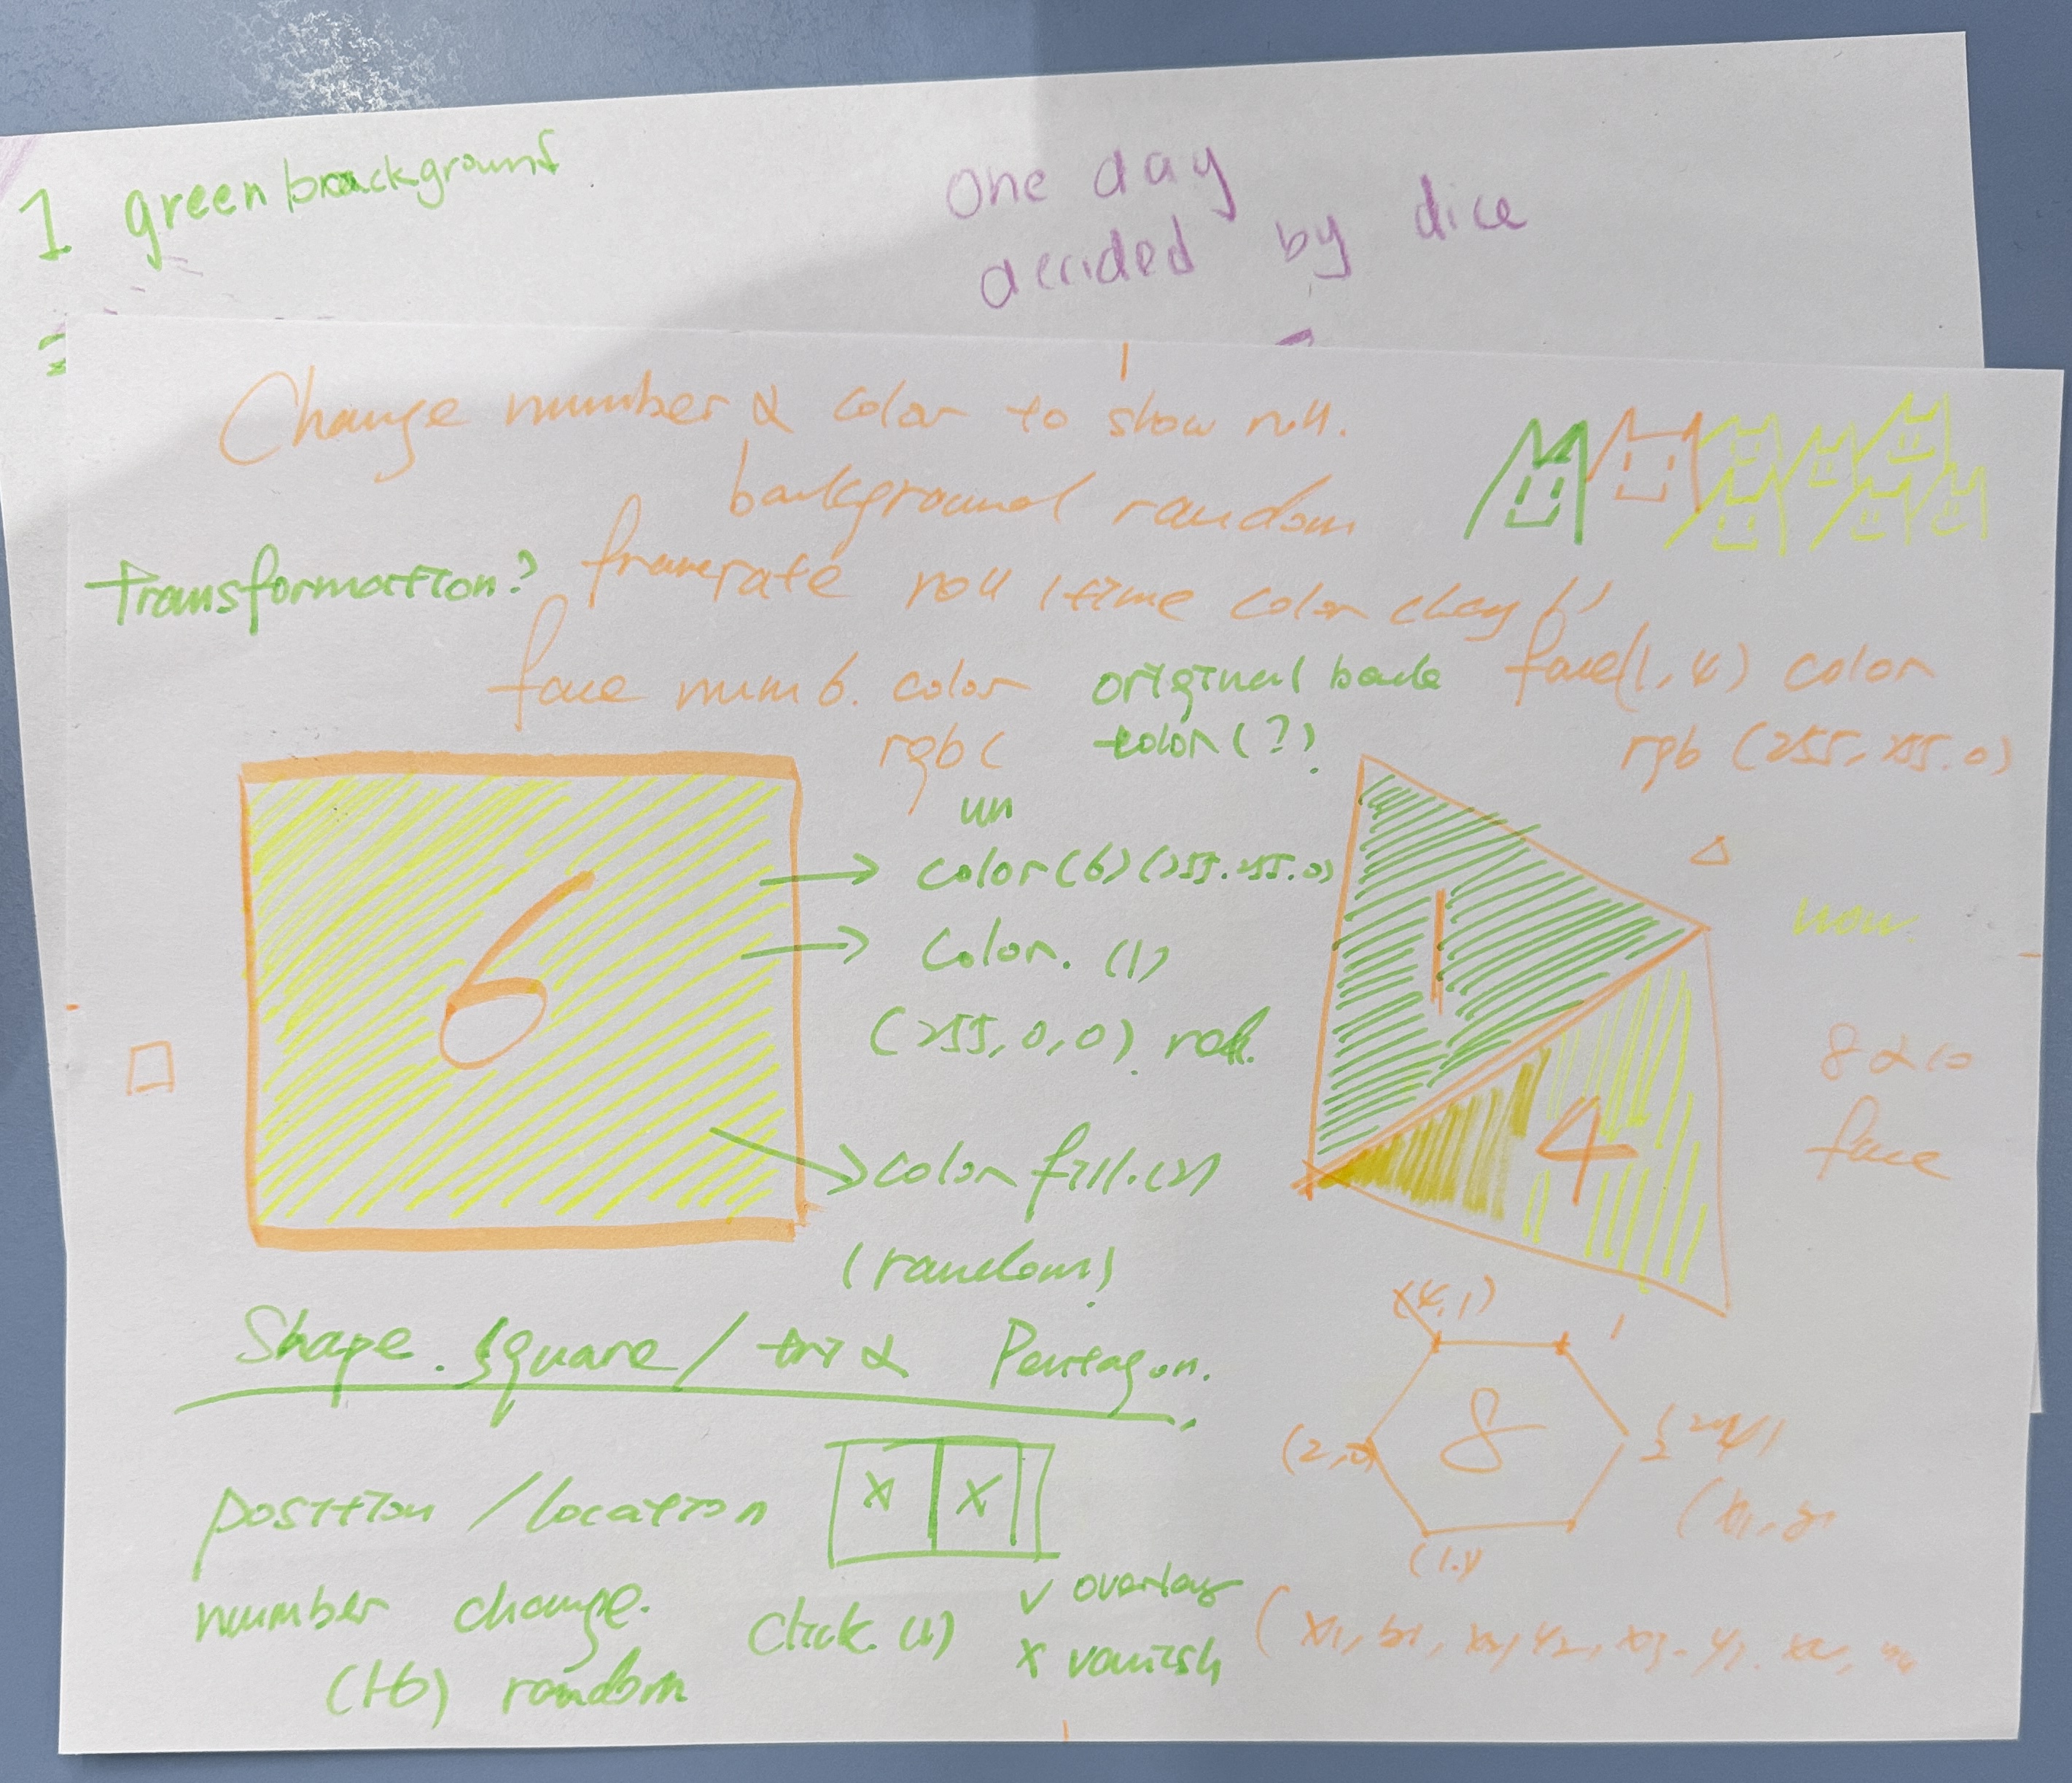 1 green background
One day
decided by dice
Change number & color to show roll.
background random
Transformation? framerate roll 1 time color
face num 6. color
rgb (
original back
color (?)
face (1, 4) color
rgb (255, 255. 0)
color (6) (255. 255. 0)
color. (1)
(255, 0, 0)
color fill. (2)
(random)
6
1
4
8 & 10
face
Shape. square / tri & Pentagon.
position / location
X X
number change.
(1-6) random
click.
v overlay
x vanish
(4, 1)
1
8
(2, 0)
(1.
(x1, x2, y2, x3. y3.